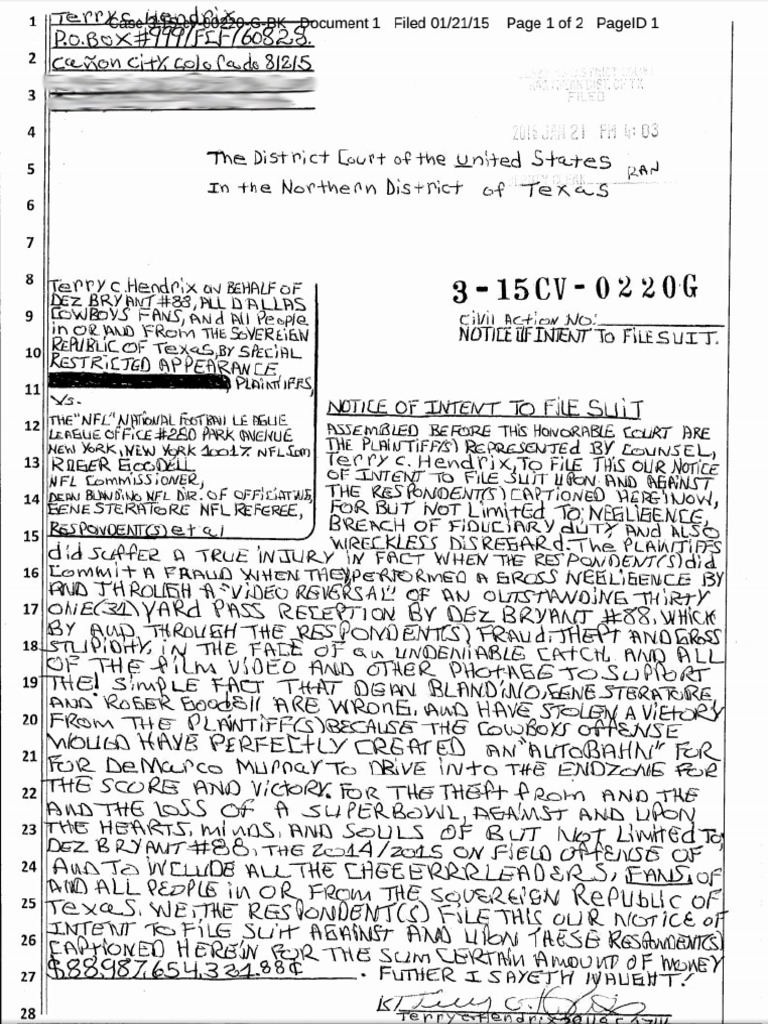 Terry C. Hendrix
Case 3:15-cv-00220-G-BK Document 1 Filed 01/21/15 Page 1 of 2 PageID 1
1
P.O. BOX #999/FCF/60828.
2
Cañon City Colorado 81215
3
FILED
4
2015 JAN 21 PM 4:03
The District Court of the United States
5
RAN
In the Northern District of Texas
6
7
8
Terry C. Hendrix ON BEHALF OF
3-15CV-0220G
DEZ BRYANT #88, ALL DALLAS
9
COWBOYS FANS, AND All People
CiVil ACTiON NO:
in OR AND FROM THE SOVEREIGN
NOTICE OF INTENT TO FILE SUIT.
10
REPUBLIC OF TEXAS, BY SPECIAL
RESTRICTED APPEARANCE
11
, PLAINTIFFS,
Vs.
NOTICE OF INTENT TO FILE SUIT
12
THE "NFL" NATIONAL FOOTBALL LEAGUE
LEAGUE OFFICE #280 PARK AVENUE
NEW YORK, NEW YORK 10017. NFL.com
13
ROGER GOODELL
NFL COMMISSIONER,
14
DEAN BLANDINO NFL DIR. OF OFFICIATING,
GENE STERATORE NFL REFEREE,
15
RESPONDENT(S) et al
ASSEMBLED BEFORE THIS HONORABLE COURT ARE
THE PLAINTIFF(S) REPRESENTED BY COUNSEL,
Terry C. Hendrix, TO FILE THIS OUR NOTICE
OF INTENT TO FILE SUIT UPON AND AGAINST
THE RESPONDENT(S) CAPTIONED HEREINOW,
FOR BUT NOT LIMITED TO; NEGLIGENCE,
BREACH OF FIDUCIARY DUTY AND ALSO
WRECKLESS DISREGARD. The PLAINTIFFS
did SUFFER A TRUE INJURY IN FACT WHEN THE RESPONDENT(S) did
16
COMMIT A FRAUD WHEN THEY PERFORMED A GROSS NEGLIGENCE BY
AND THROUGH A "VIDEO REVERSAL" OF AN OUTSTANDING THIRTY
17
ONE (31) YARD PASS RECEPTION BY DEZ BRYANT #88, WHICH
BY AND THROUGH THE RESPONDENT(S) FRAUD, THEFT AND GROSS
18
STUPIDITY, IN THE FACE OF an UNDENIABLE CATCH, AND ALL
OF THE film VIDEO AND OTHER PHOTAGE TO SUPPORT
19
THE! SIMPLE FACT THAT DEAN BLANDINO, GENE STERATORE,
AND ROGER GOODELL ARE WRONG, AND HAVE STOLEN A VICTORY
20
FROM THE PLAINTIFF(S) BECAUSE THE COWBOYS OFFENSE
WOULD HAVE PERFECTLY CREATED AN "AUTOBAHN" FOR
21
FOR DeMARCO MURRAY TO DRIVE INTO THE ENDZONE FOR
THE SCORE AND VICTORY. FOR THE THEFT FROM AND THE
22
AND THE LOSS OF A SUPERBOWL, AGAINST AND UPON
23
THE HEARTS, MINDS, AND SOULS OF BUT NOT LIMITED TO;
DEZ BRYANT #88, THE 2014/2015 ON FIELD OFFENSE OF
24
AND TO INCLUDE ALL THE CHEEERRRLEADERS, FANS, OF
AND ALL PEOPLE in OR FROM THE SOVEREIGN REPUBLIC OF
25
TEXAS. WE, THE RESPONDENT(S) FILE THIS OUR NOTICE OF
INTENT TO FILE SUIT AGAINST AND UPON THESE RESPONDENT(S)
26
CAPTIONED HEREIN FOR THE SUM CERTAIN AMOUNT OF MONEY
27
$88,987,654,321.88¢. FUTHER I SAYETH NAUGHT!
28
Terry C. Hendrix